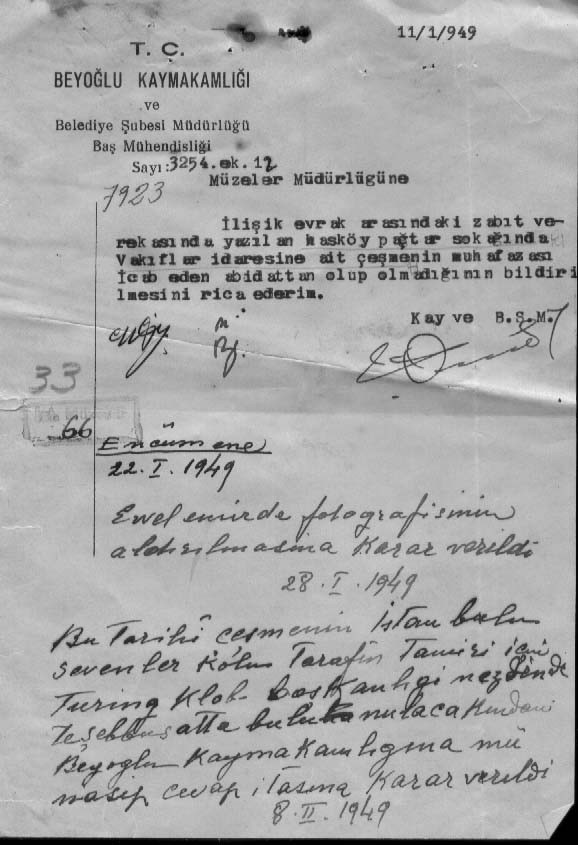 11/1/949
T. C.
BEYOĞLU KAYMAKAMLIĞI
ve
Belediye Şubesi Müdürlüğü
Baş Mühendisliği
Sayı :3254.ek.12
7923
Müzeler Müdürlügüne
İlişik evrak arasındaki zabıt ve-
rekasında yazılan hasköy paştar sokağında
Vakıflar idaresine ait çeşmenin muhafazası
İcab eden abidattan olup olmadığının bildiri
lmesini rica ederim.
Kay ve B.Ş.M.
33
66
Encümene
22.I.1949
Evvel emirde fotografisinin
aldırılmasına Karar verildi
28.I.1949
Bu Tarihî çeşmenin İstanbulu
sevenler Kolu Tarafın Tamiri için
Turing Klob başkanlıgi nezdinde
Teşebbusatta bulunulacakından
Beyoglu Kaymakamlıgına mü
nasip cevap itasına Karar verildi
8.II.1949